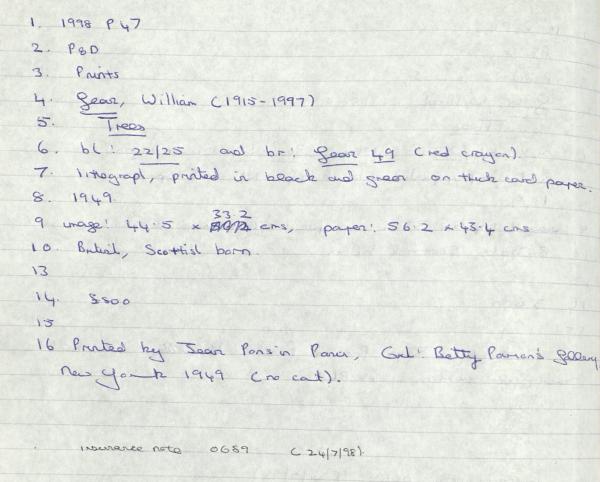 1. 1998 P 47
2. P&D
3. Prints
4. Gear, William (1915-1997)
5. Trees
6. bl: 22/25 and br: Gear 49 (red crayon).
7. lithograph, printed in black and green on thick card paper.
8. 1949
33.2
9 image: 44.5 x cms, paper: 56.2 x 43.4 cms
10. British, Scottish born.
13
14. £500
15
16 Printed by Jean Pons in Paris, Exh: Betty Parson's Gallery,
New York 1949 (no cat).
insurance note 0689 (24/7/98).